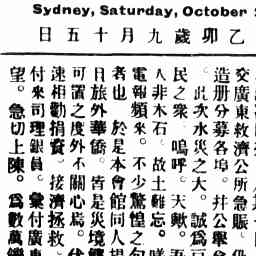 Sydney, Saturday, October
日五十月九歲卯乙
交廣東救濟公所急賑。仍
造册分募各埠。并公舉
。此次水災之大。誠爲
民之衆。嗚呼。天歟。
人非木石。故土難忘。
電報頻來。不少驚惶之句
者也　於是本會館同人
日旅外華僑。皆是災境
可置之度外不關心焉。
速相勸捐資。接濟拯救。
付來司理銀員。彙付廣
望。急切上陳。爲數萬